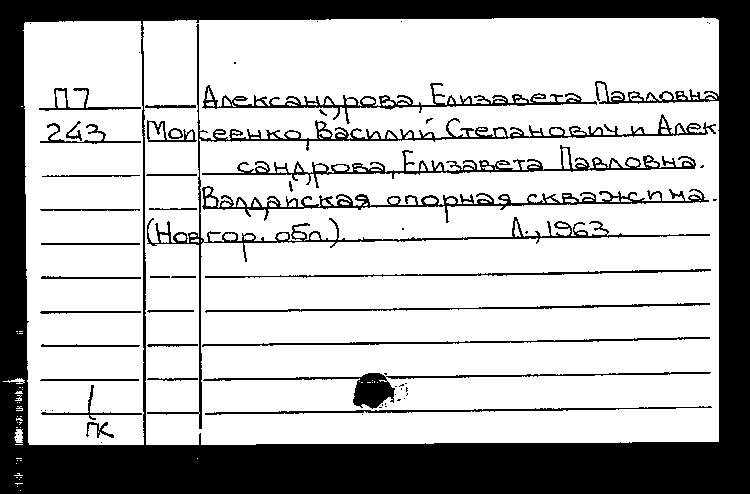 П7 Александрова, Елизавета Павловна
243 Моисеенко, Василий Степанович и Алек
сандрова, Елизавета Павловна.
Валдайская опорная скважина.
(Новгор. обл.). Л., 1963.
1
ГК